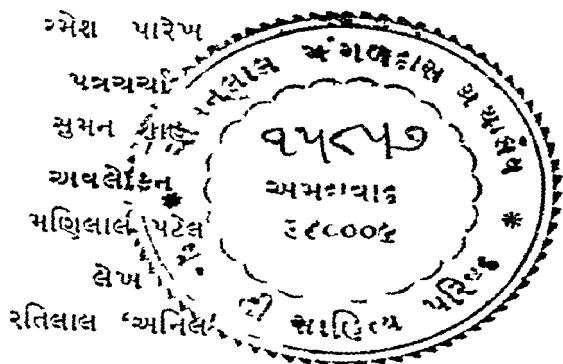 રમેશ પારેખ
પત્રચર્ચા
સુમન શાહ
અવલોકન
મણિલાલ પટેલ
લેખ
રતિલાલ ‘અનિલ’
મંગળદાસ ગ્રંથાલય
૧૫૮૫૭
અમદાવાદ
સાહિત્ય પરિષદ